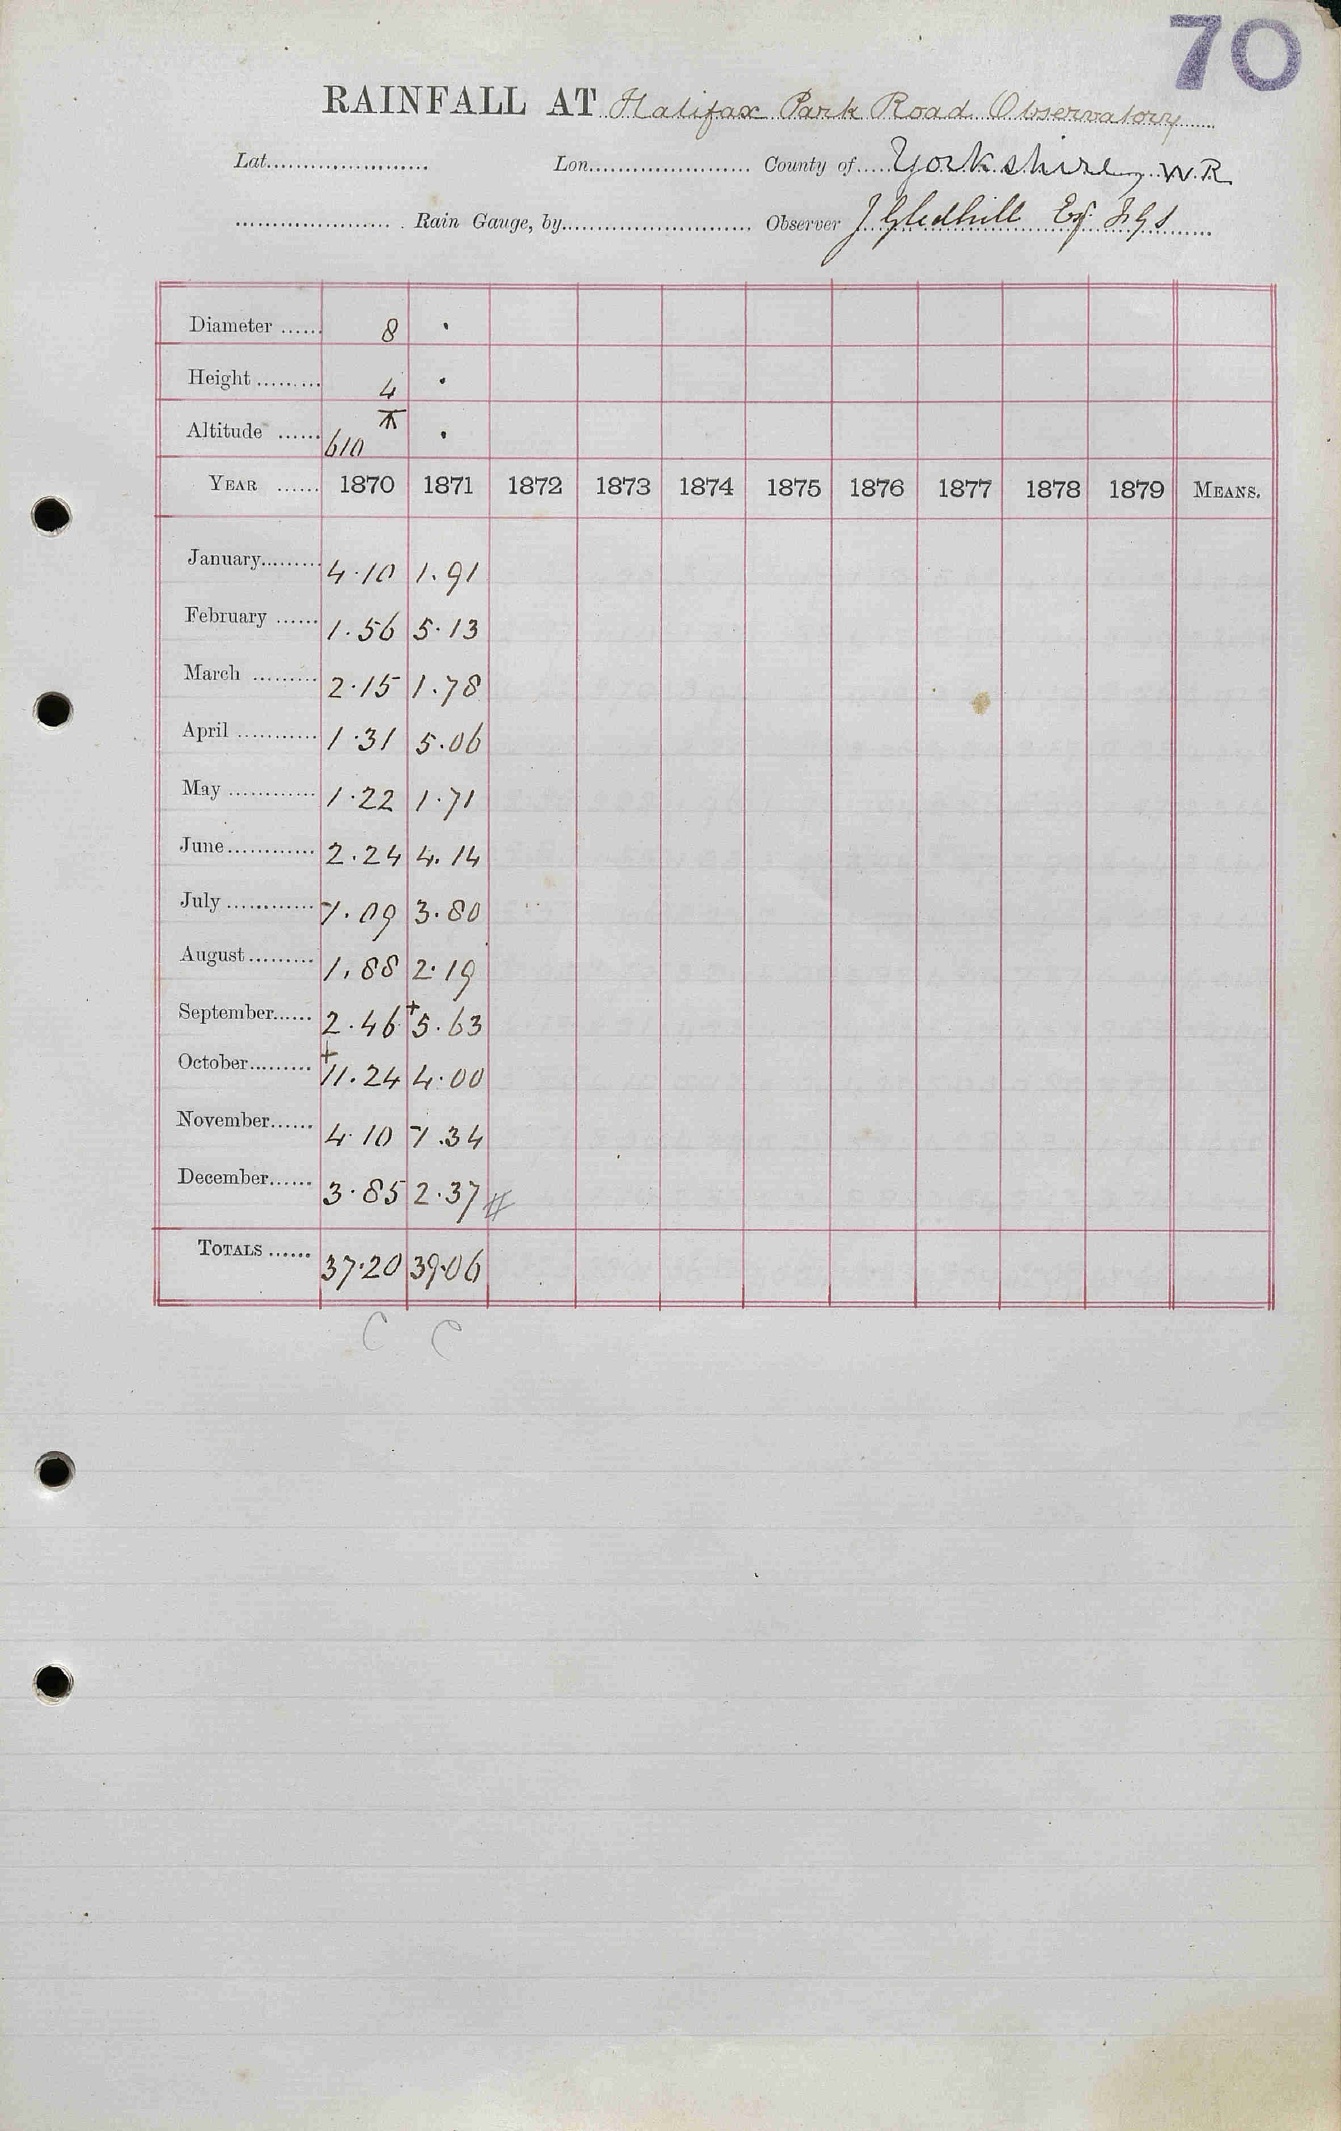 70
RAINFALL AT Halifax Park Road Observatory
Lat. Lon. County of Yorkshire, W.R
Rain Gauge, by Observer J Gledhill Esq. F.G.S
Diameter ...... 8 .
Height ......... 4 .
Altitude ...... 610 .
YEAR ...... 1870 1871 1872 1873 1874 1875 1876 1877 1878 1879 MEANS.
January......... 4.10 1.91
February ...... 1.56 5.13
March ......... 2.15 1.78
April ........... 1.31 5.06
May ............ 1.22 1.71
June............ 2.24 4.14
July ............ 1.09 3.80
August......... 1.88 2.19
September...... 2.46 +5.63
October......... +11.24 4.00
November...... 4.10 1.34
December...... 3.85 2.37 #
TOTALS ...... 37.20 39.06
C C